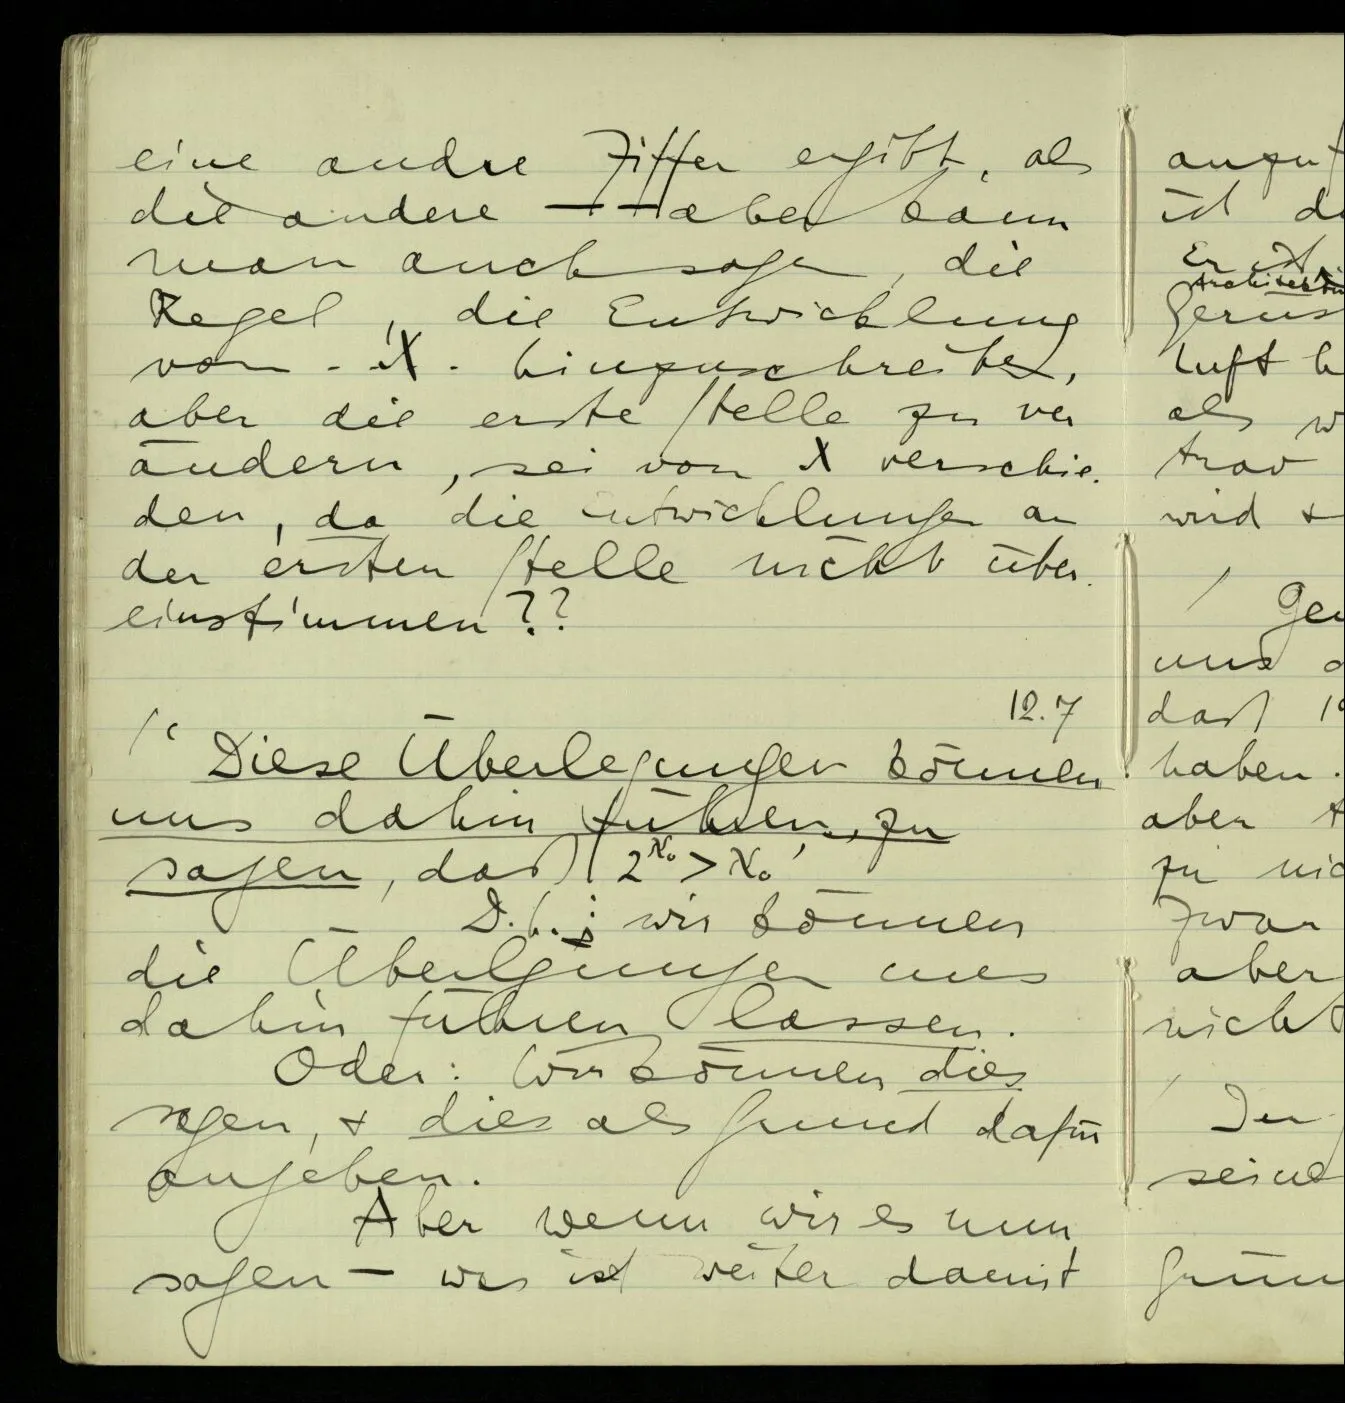 eine andre Ziffer ergibt, als
die andere — — aber kann
man auch sagen, die
Regel, die Entwicklung
von X hinzuschreiben,
aber die erste Stelle zu ver
ändern, sei von X verschie-
den, da die Entwicklungen an
der ersten Stelle nicht über-
einstimmen??
12.7
Diese Überlegungen können
uns dahin führen, zu
sagen, daß 2^ℵ₀ > ℵ₀
D.h.: wir können
die Überlegungen uns
dahin führen lassen.
Oder: Wir können dies
sagen, + dies als Grund dafür
angeben.
Aber wenn wir es nun
sagen — was ist weiter damit
ist
Er ist
luft
als
wird +
uns
daß
haben.
aber
zu
zwar
aber
nicht
seine